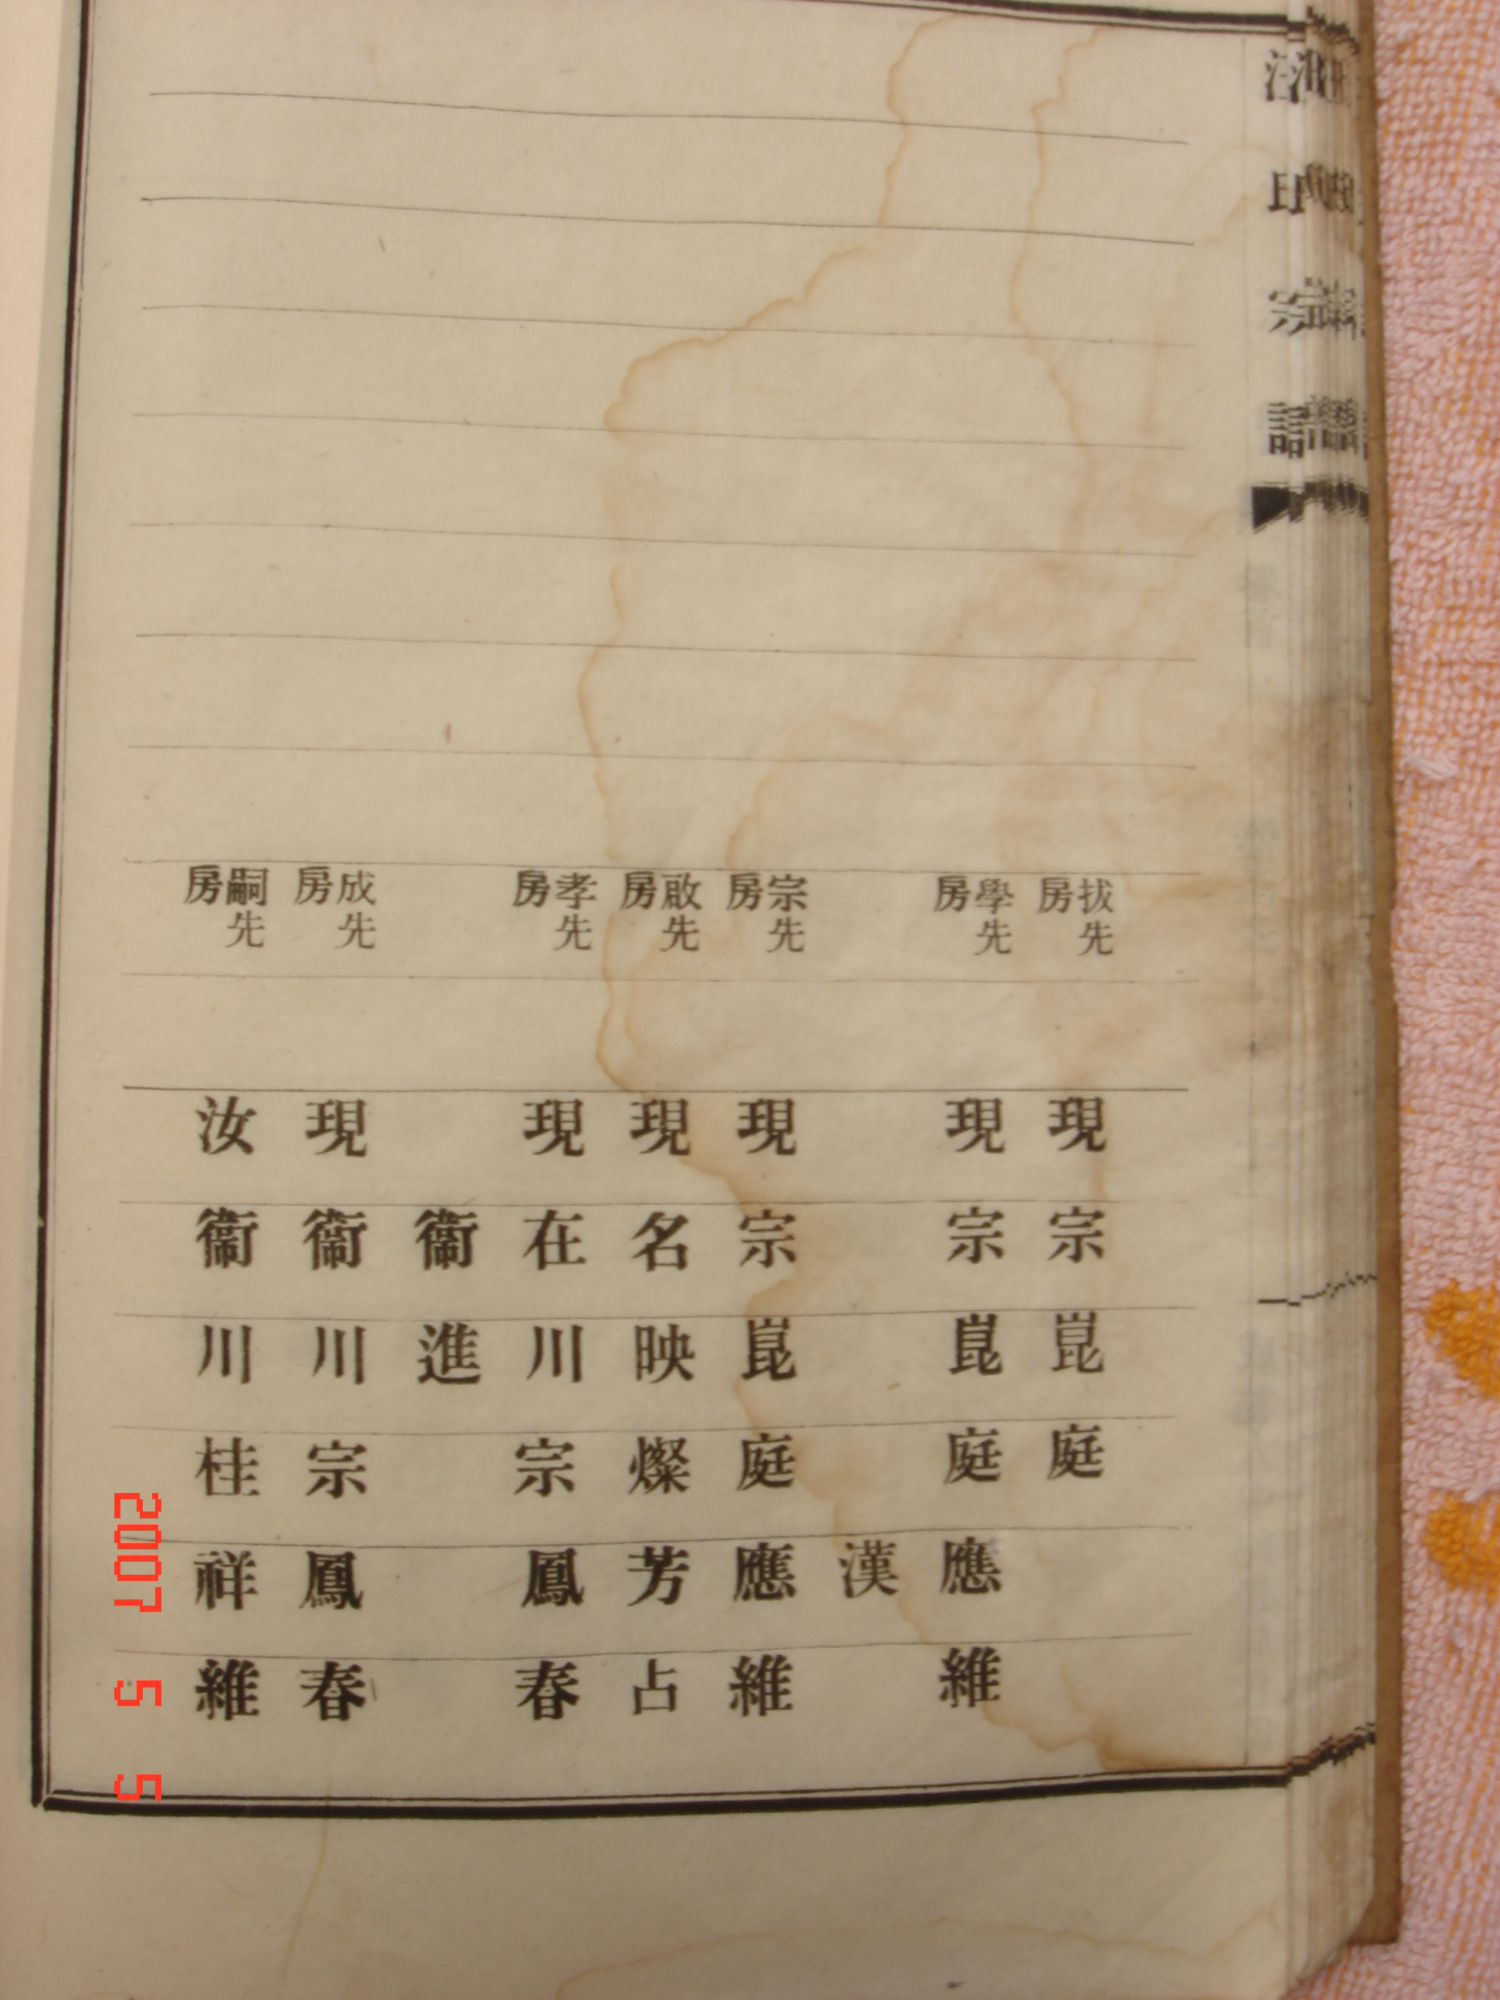 拔先房 現宗崑庭
學先房 現宗崑庭應維
漢
宗先房 現宗崑庭應維
敢先房 現名映燦芳占
孝先房 現在川宗鳳春
衞進
成先房 現衞川宗鳳春
嗣先房 汝衞川桂祥維
2007 5 5